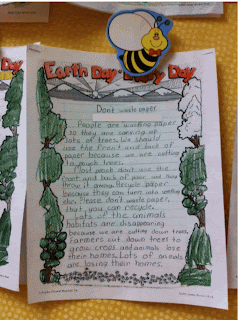 Earth Day Every Day
Don't waste paper
People are wasting paper
so they are
lots of trees. We should
use the front and back of
paper because we are cutting
to much trees.
Most people don't use the
front and back of paper and they
throw it away. Recycle paper
because they can turn into something
else. Please don't waste paper,
that you can recycle.
Lots of the animals
habitats are disappearing
because we are cutting down trees.
Farmers cut down trees to
grow crops and animals lose
their homes. Lots of animals
are losing their homes.